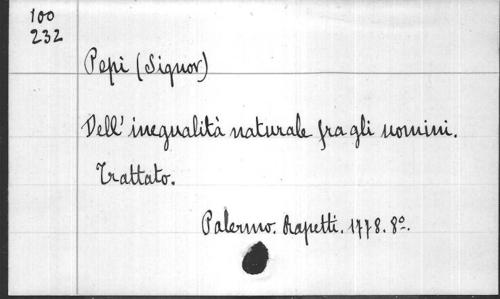 100
232
Pepi (Signor)
Dell' inegualità naturale fra gli uomini.
Trattato.
Palermo. Rapetti. 1778. 8°.